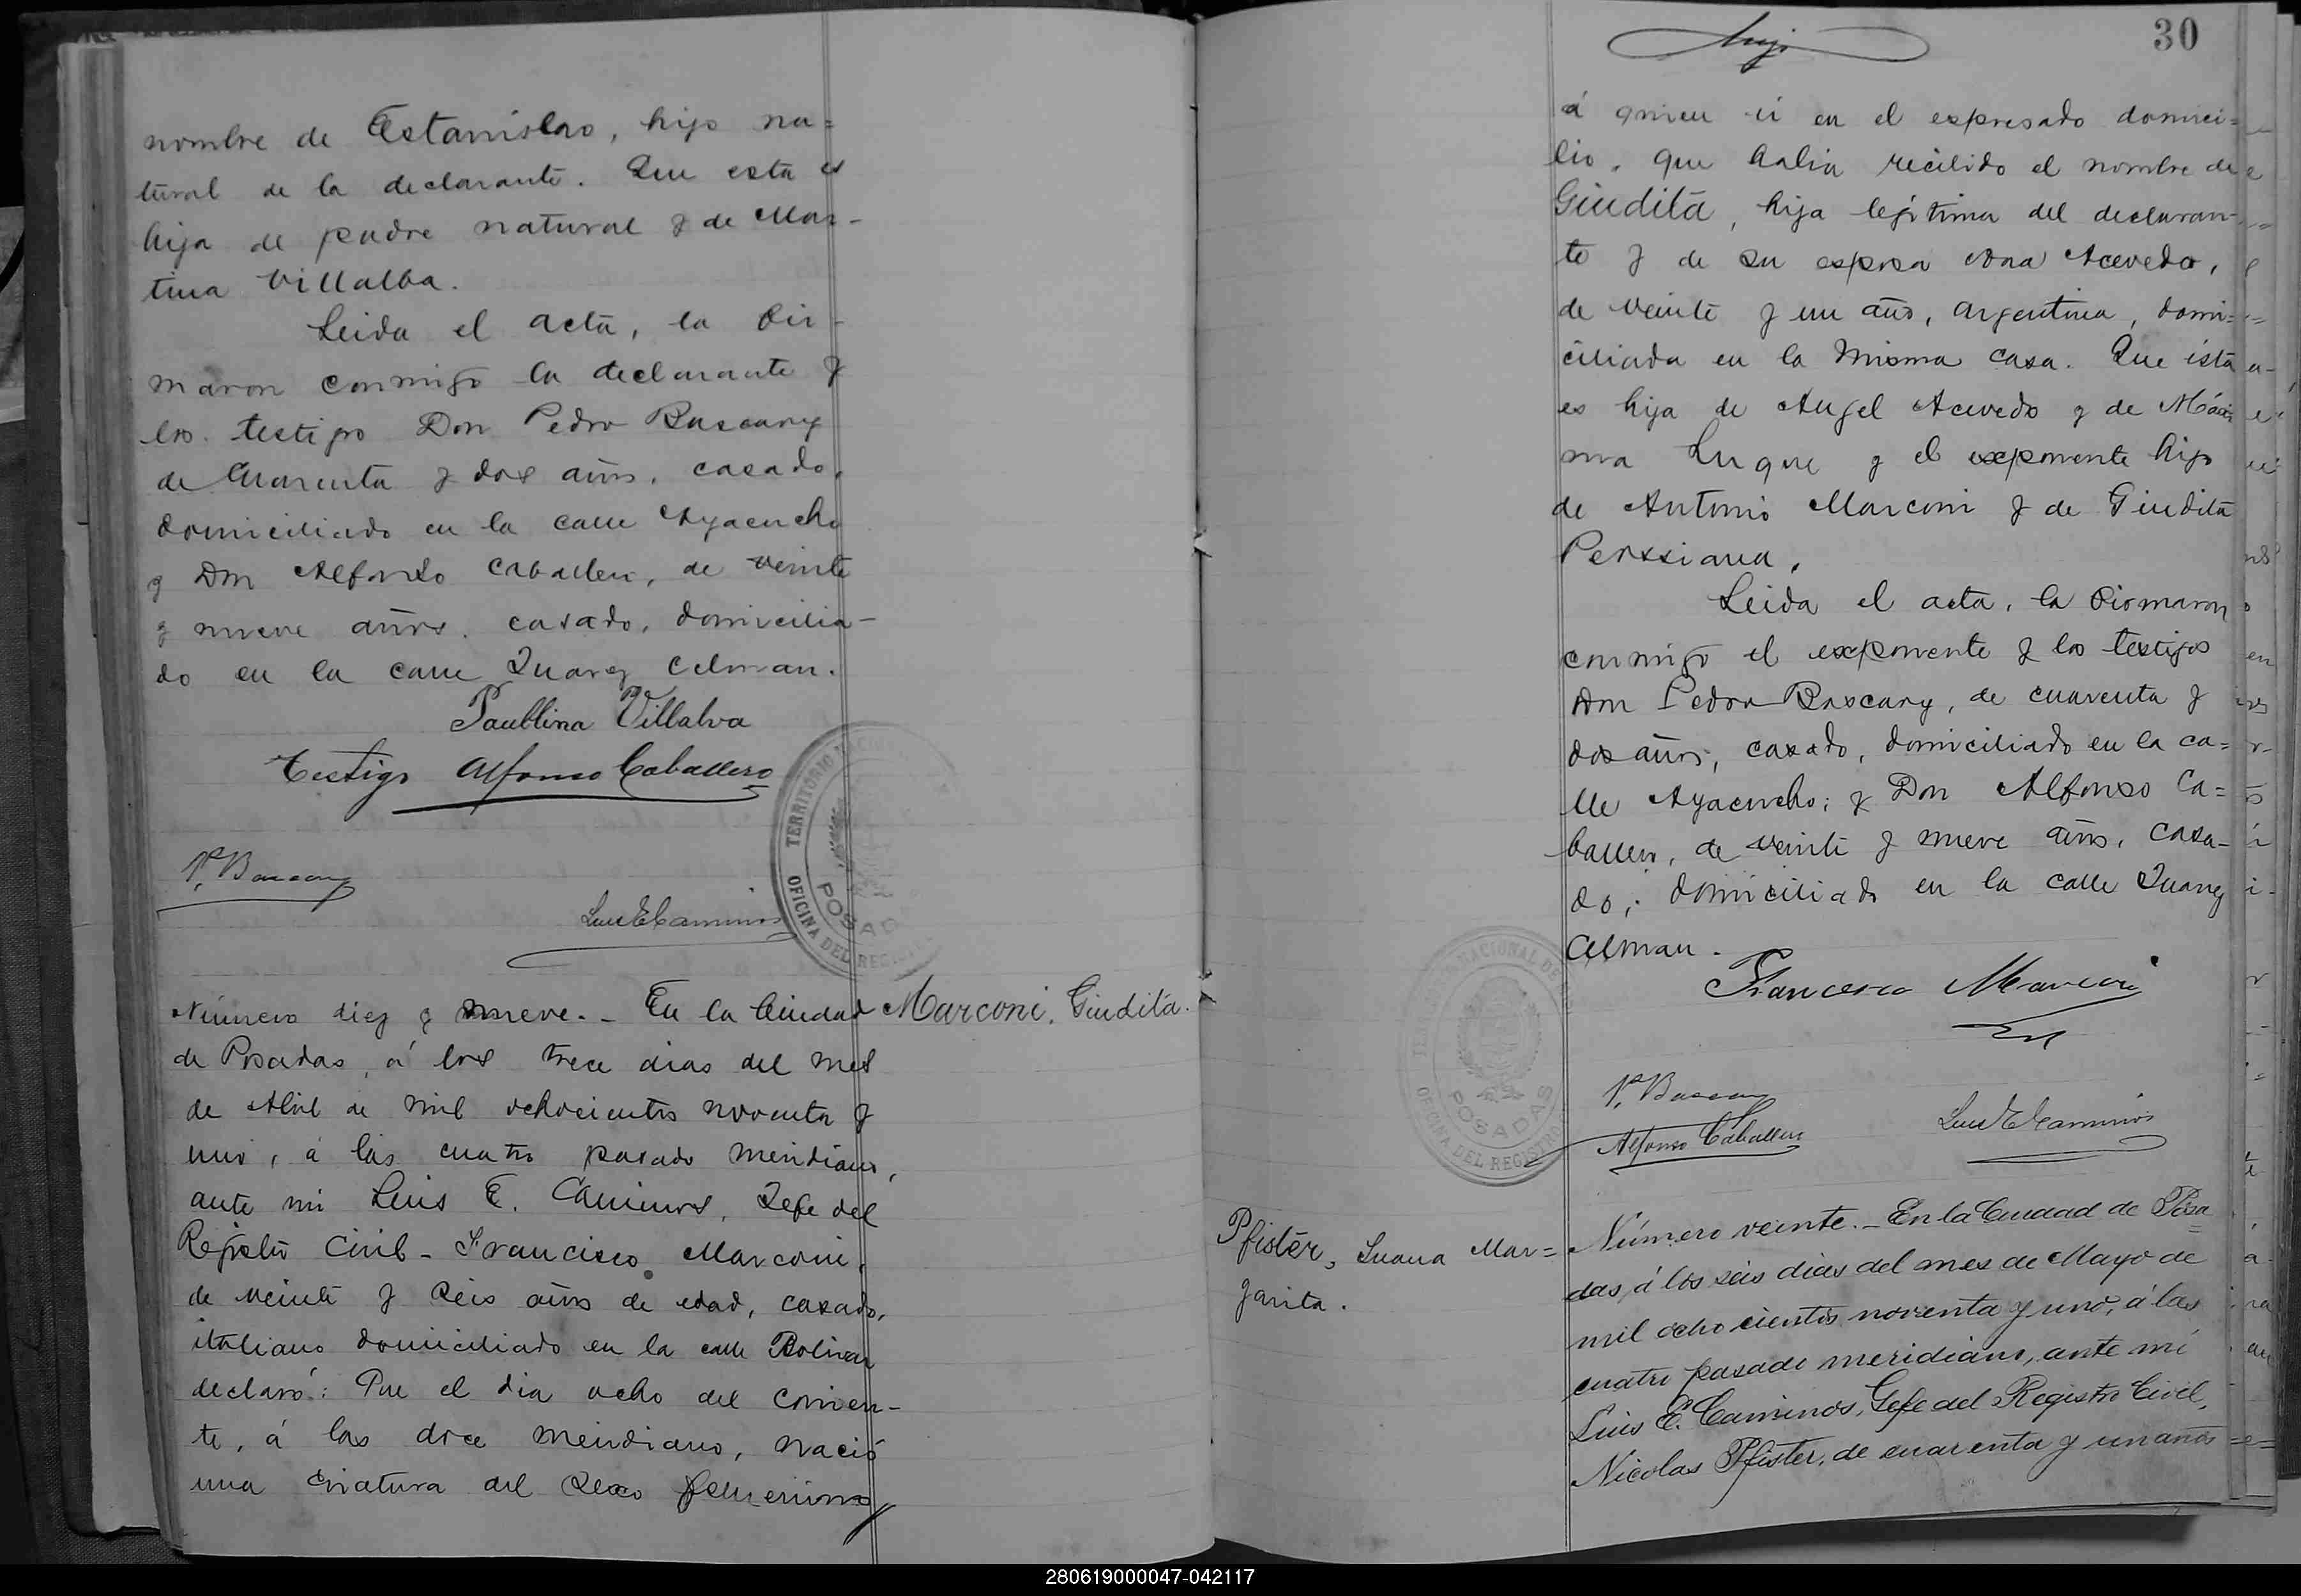 nombre de Estanislao, hijo na=
tural de la declarante. Que esta es
hija de padre natural y de Mar-
tina Villalba.
Leida el acta, la fir-
maron conmigo la declarante y
los testigo Don Pedro Bascary
de Cuarenta y dos años, casado,
domiciliado en la calle Ayacucho
y Don Alfonso Caballero, de veinte
y nueve años, casado, domicilia-
do en la calle Juarez Celman.
Paublina Villalva
Testigo Alfonso Caballero
P. Bascary
Luis E Caminos
TERRITORIO NACIONAL
OFICINA DEL REGISTRO
POSADAS
Número diez y nueve.- En la Ciudad
Marconi, Giudita.
de Posadas, á los trece dias del mes
de Abril de mil ochocientos noventa y
uno, á las cuatro pasado meridiano,
ante mi Luis E. Caminos, Jefe del
Registro Civil - Francisco Marconi,
de veinte y seis años de edad, casado,
italiano domiciliado en la calle Bolivar
declaró: Que el dia ocho del corrien-
te, á las doce meridiano, nació
una criatura del sexo femenino
30
á quien ví en el expresado domici=
lio, que habia recibido el nombre de
Giudita, hija legítima del declaran-
te y de su esposa Ana Acevedo,
de veinte y un año, Argentina, domi=
ciliada en la misma casa. Que ésta
es hija de Angel Acevedo y de Máxi
ma Luque y el exponente hijo
de Antonio Marconi y de Giudita
Perssiana.
Leida el acta, la firmaron
conmigo el exponente y los testigos
Don Pedro Bascary, de cuarenta y
dos años, casado, domiciliado en la ca=
lle Ayacucho; y Don Alfonso Ca=
ballero, de veinte y nueve años, casa-
do, domiciliado en la calle Juarez
Celman.
Francesco Marconi
P. Bascary
Alfonso Caballero
Luis E Caminos
OFICINA DEL REGISTRO
POSADAS
Pfister, Juana Mar=
garita.
Número veinte.- En la Ciudad de Posa
das, á los seis dias del mes de Mayo de
mil ochocientos noventa y uno, á las
cuatro pasado meridiano, ante mí
Luis E. Caminos, Gefe del Registro Civil,
Nicolas Pfister, de cuarenta y un años
280619000047-042117